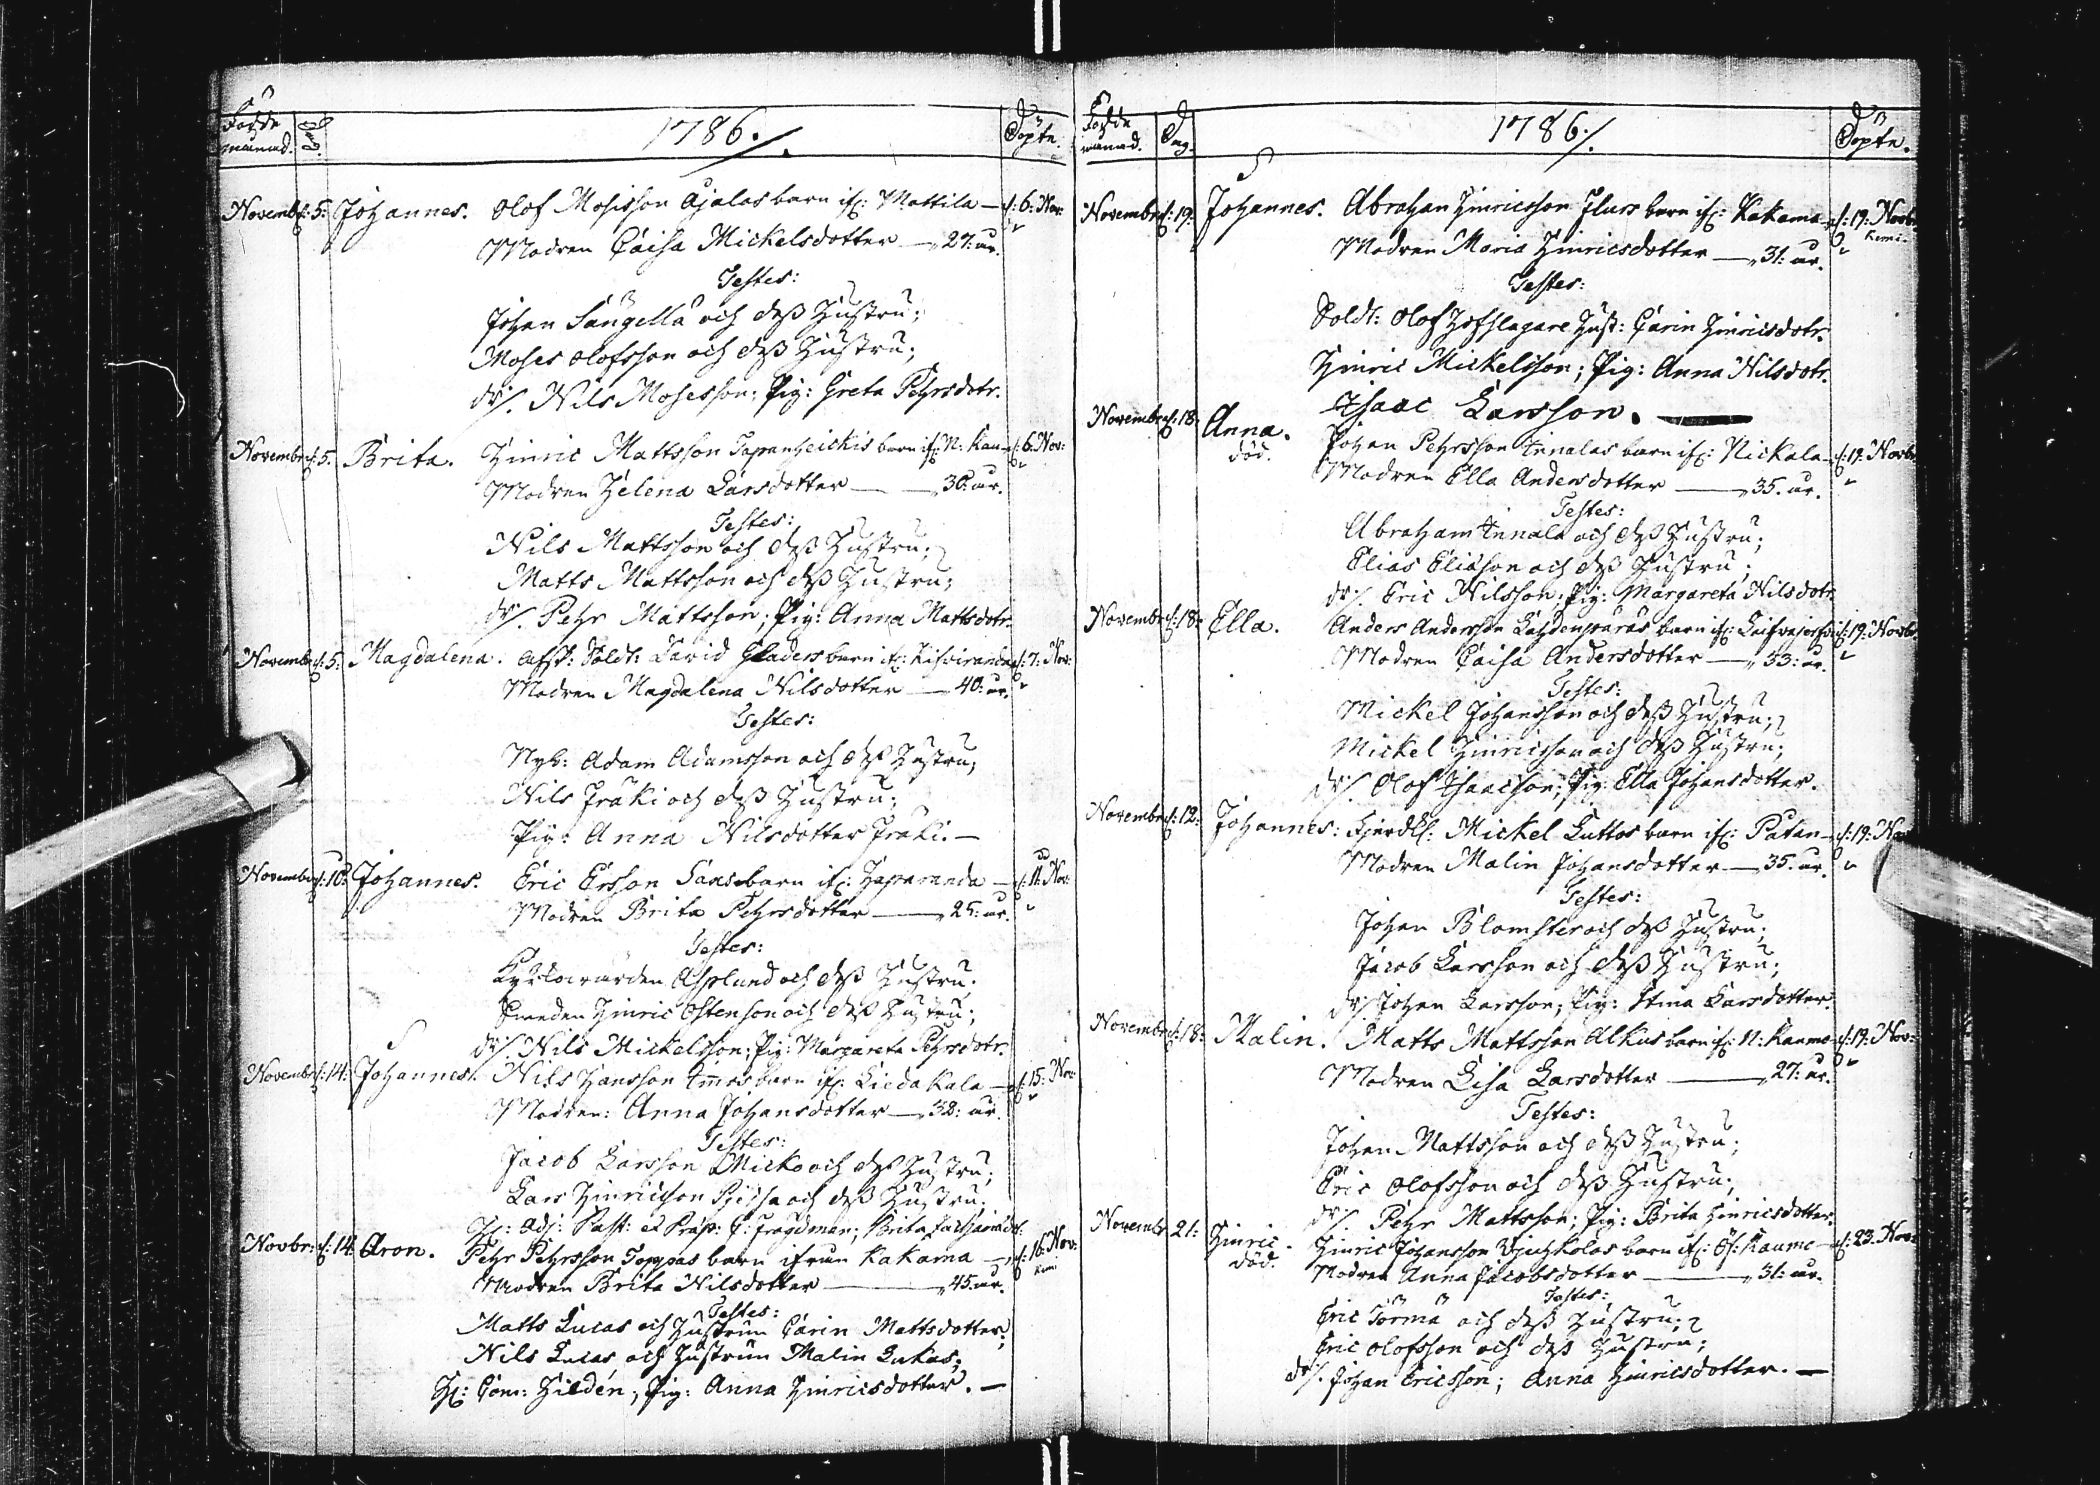 Födde månad. Dag. 1786. Döpte.
Novembr: d: 5: Johannes. Olof Mosisson Ajalas barn ifr: Mattila — d: 6: Nov:
Modren Caisa Mickelsdotter — 27: år.
Testes:
Johan och dess Hustru;
Moses Olofsson och dess Hustru;
dr/. Nils Mosesson; Pig: Greta Pehrsdotr.
Novembr: d: 5. Brita. Hinric Mattsson barn ifr: N: d: 6: Nov:
Modren Helena Larsdotter — 30: år.
Testes:
Nils Mattsson och dess Hustru;
Matts Mattsson och dess Hustru;
dr/. Pehr Mattsson; Pig: Anna Mattsdotr.
Novembr: d: 5: Magdalena. Afsk: Soldt: David barn ifr: d: 7: Nov:
Modren Magdalena Nilsdotter — 40: år.
Testes:
Nyb: Adam Adamsson och dess Hustru;
Nils Fräki och dess Hustru;
Pig: Anna Nilsdotter Fräki. —
Novembr: d: 10: Johannes. Eric Ersson barn ifr: Haparanda — d: 11: Nov:
Modren Brita Pehrsdotter — 25: år.
Testes:
Kyrkowärden Asplund och dess Hustru;
Smeden Hinric Ostenson och dess Hustru;
dr/. Nils Mickelsson; Pig: Margareta Pehrsdotr.
Novembr: d: 14: Johannes. Nils Hansson barn ifr: Liedakala — d: 15: Nov:
Modren: Anna Johansdotter — 38: år.
Testes:
Jacob Larsson Micko och dess Hustru;
Lars Hinricsson och dess Hustru;
Hr: Adj: Past: et Brita
Novbr: d: 14 Aron. Pehr Pehrsson Toppas barn ifrån Kakama — d: 16: Nov:
Modren Brita Nilsdotter — 45: år.
Testes:
Matts Lucas och Hustrun Carin Mattsdotter;
Nils Lucas och Hustrun Malin Lukas;
Hr: Com: Hildén; Pig: Anna Hinricsdotter. —
Födde månad. Dag. 1786. Döpte.
Novembr: d: 19: Johannes. Abraham Hinricsson barn ifr: Kakama — d: 19: Novbr.
Kemi.
Modren Maria Hinricsdotter — 31: år.
Testes:
Soldt: Olof Hofslagare Hust: Carin Hinricsdotr.
Hinric Mickelsson; Pig: Anna Nilsdotr.
Isaac Larsson.
Novembr: d: 18: Anna. Johan Pehrsson Innalas barn ifr: Nickala — d: 19: Novbr
död.
Modren Ella Andersdotter — 35: år.
Testes:
Abraham Innala och dess Hustru;
Elias Eliasson och dess Hustru;
dr/. Eric Nilsson; Pig: Margareta Nilsdotr.
Novembr: d: 18: Ella. Anders Andersson barn ifr: d: 19: Novbr
Modren Caisa Andersdotter — 33: år.
Testes:
Mickel Johansson och dess Hustru;
Mickel Hinricsson och dess Hustru;
dr/. Olof Isaacson; Pig: Ella Johansdotter.
Novembr: d: 12: Johannes: Mickel Luttos barn ifr: Patan — d: 19: Nov
Modren Malin Johansdotter — 35: år.
Testes:
Johan Blomster och dess Hustru;
Jacob Larsson och dess Hustru;
dr/. Johan Larsson; Pig: Stina Larsdotter.
Novembr: d: 18: Malin. Matts Mattsson Alkus barn ifr: N: Raumo d: 19: Nov:
Modren Lisa Larsdotter — 27: år.
Testes:
Johan Mattsson och dess Hustru;
Eric Olofsson och dess Hustru;
dr/. Pehr Mattsson; Pig: Brita Hinricsdotter.
Novembr. 21: Hinric. Hinric Johansson barn ifr: Öf: Raumo — d: 23: Nov:
död.
Modren Anna Jacobsdotter — 31: år.
Testes:
Eric Törmä och dess Hustru;
Eric Olofsson och dess Hustru;
dr/. Johan Ericsson; Anna Hinricsdotter. —